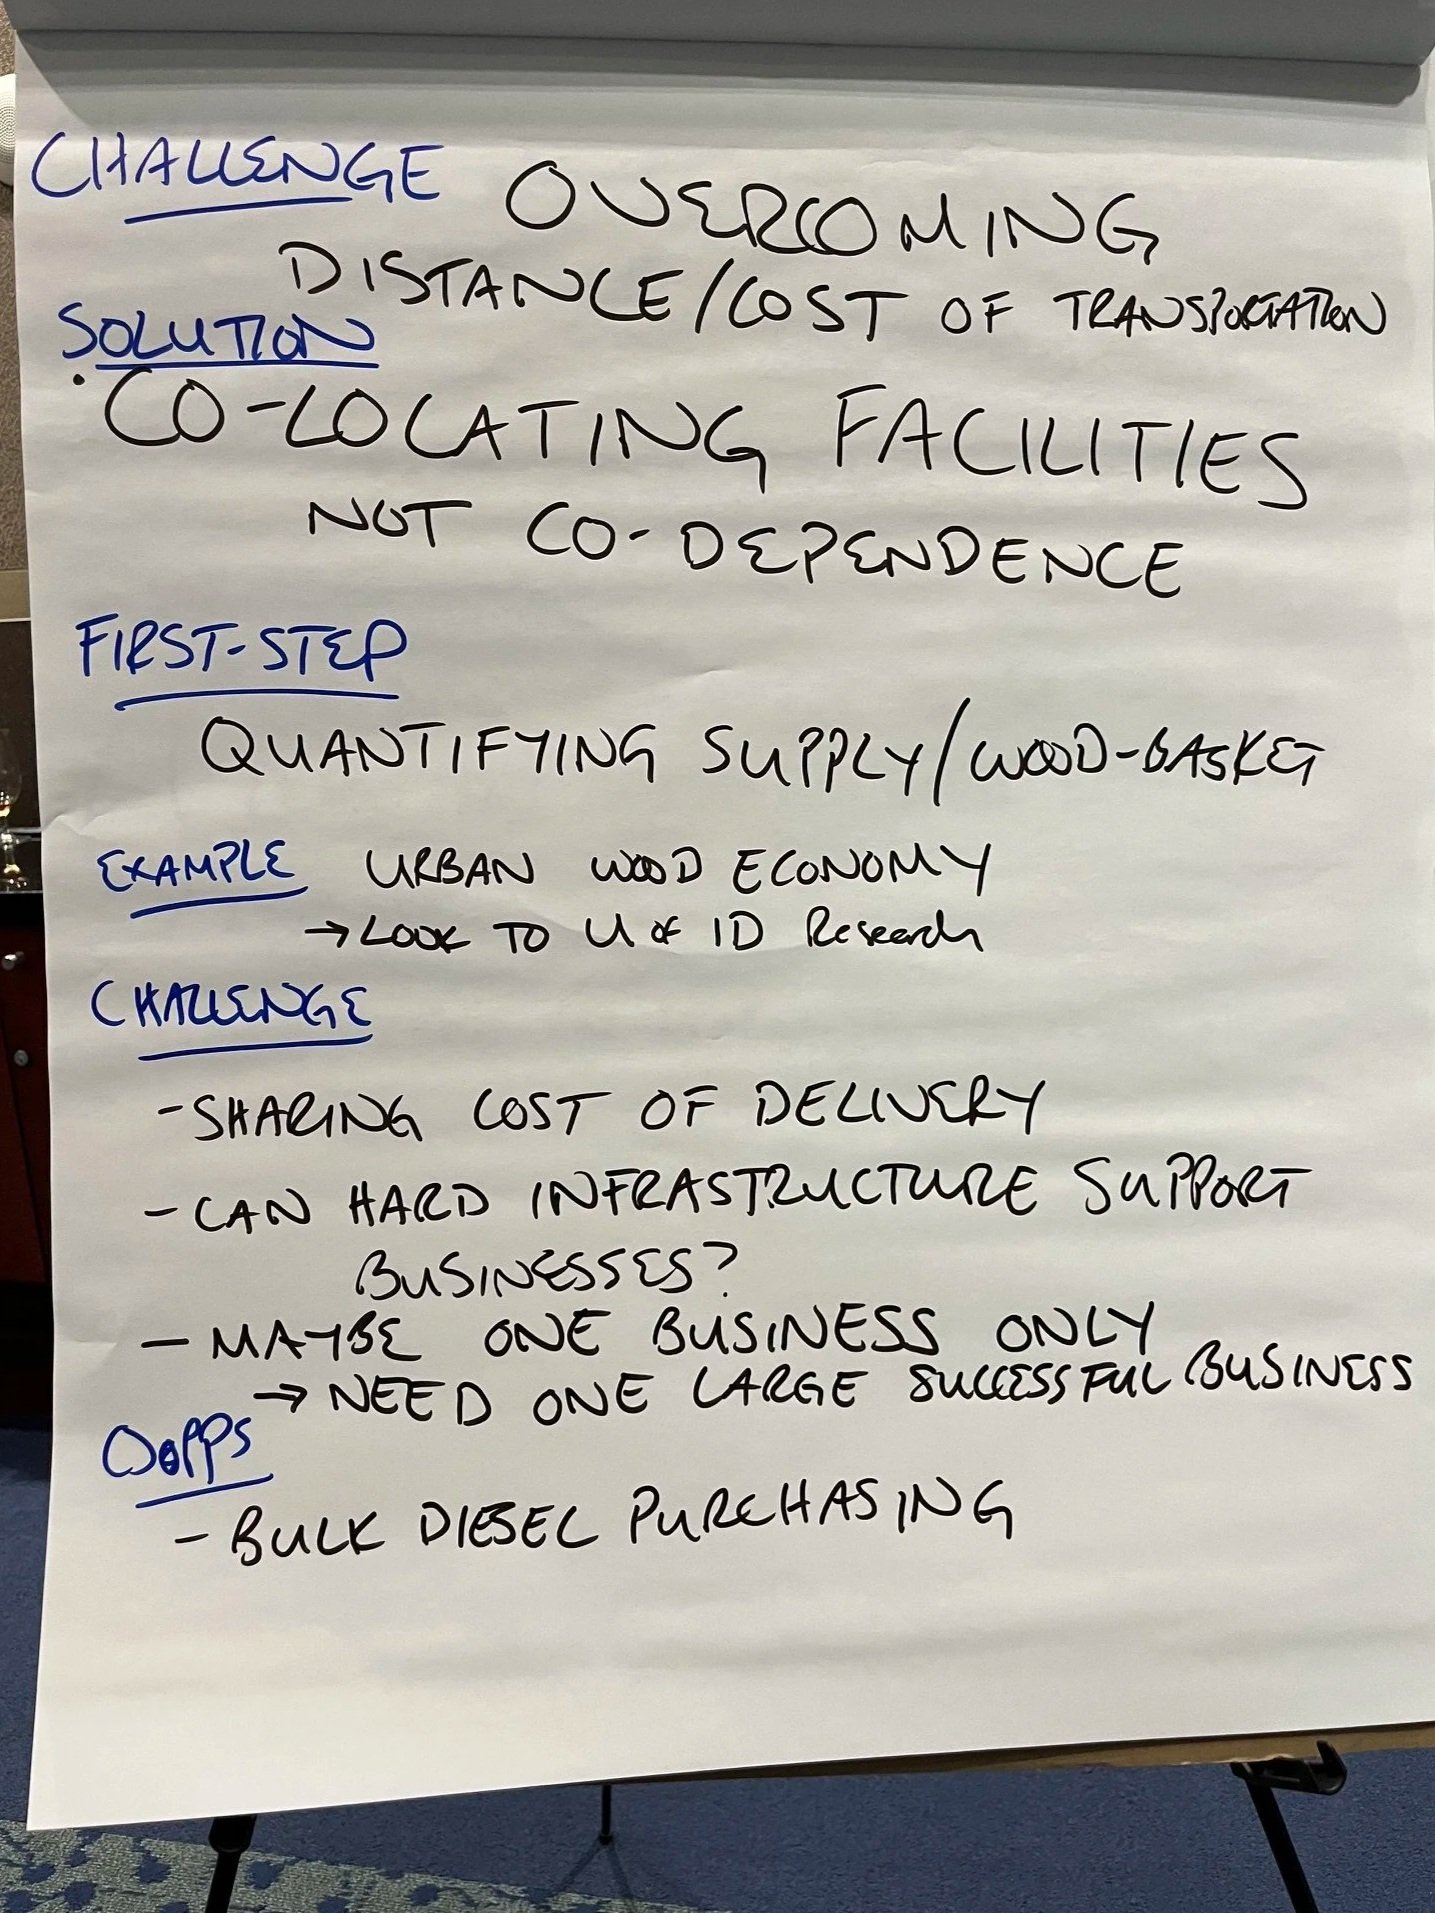 CHALLENGE OVERCOMING
DISTANCE/COST OF TRANSPORTATION
SOLUTION
· CO-LOCATING FACILITIES
NOT CO-DEPENDENCE
FIRST-STEP
QUANTIFYING SUPPLY/WOOD-BASKET
EXAMPLE URBAN WOOD ECONOMY
→ LOOK TO U of ID Research
CHALLENGE
- SHARING COST OF DELIVERY
- CAN HARD INFRASTRUCTURE SUPPORT
BUSINESSES?
- MAYBE ONE BUSINESS ONLY
→ NEED ONE LARGE SUCCESSFUL BUSINESS
OOPPS
- BULK DIESEL PURCHASING